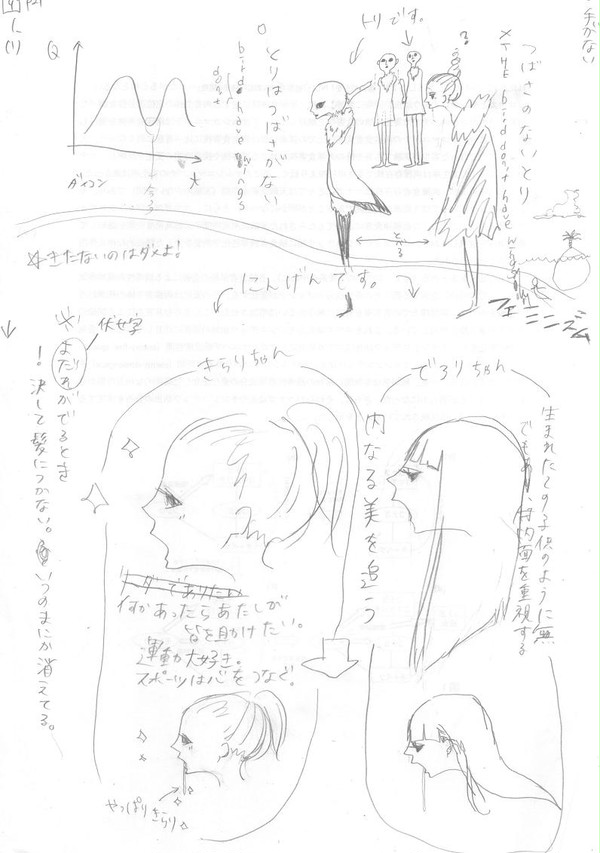 手がない
トリです。
つばさのないとり
×THE bird don't have wings
とりはつばさがない。
birds have wings
don't
Q
ダイコン
t
きたないのはダメよ!
にんげんです。
フェミニズム
伏せ字
きらりちゃん
でろりちゃん
がでるとき
!決して髪につかない。
いつのまにか消えてる。
内なる美を追う
生まれたての子供のように無
内面を重視する
何かあったらあたしが
皆を助けたい。
運動大好き。
スポーツは心をつなぐ。
やっぱりきらり